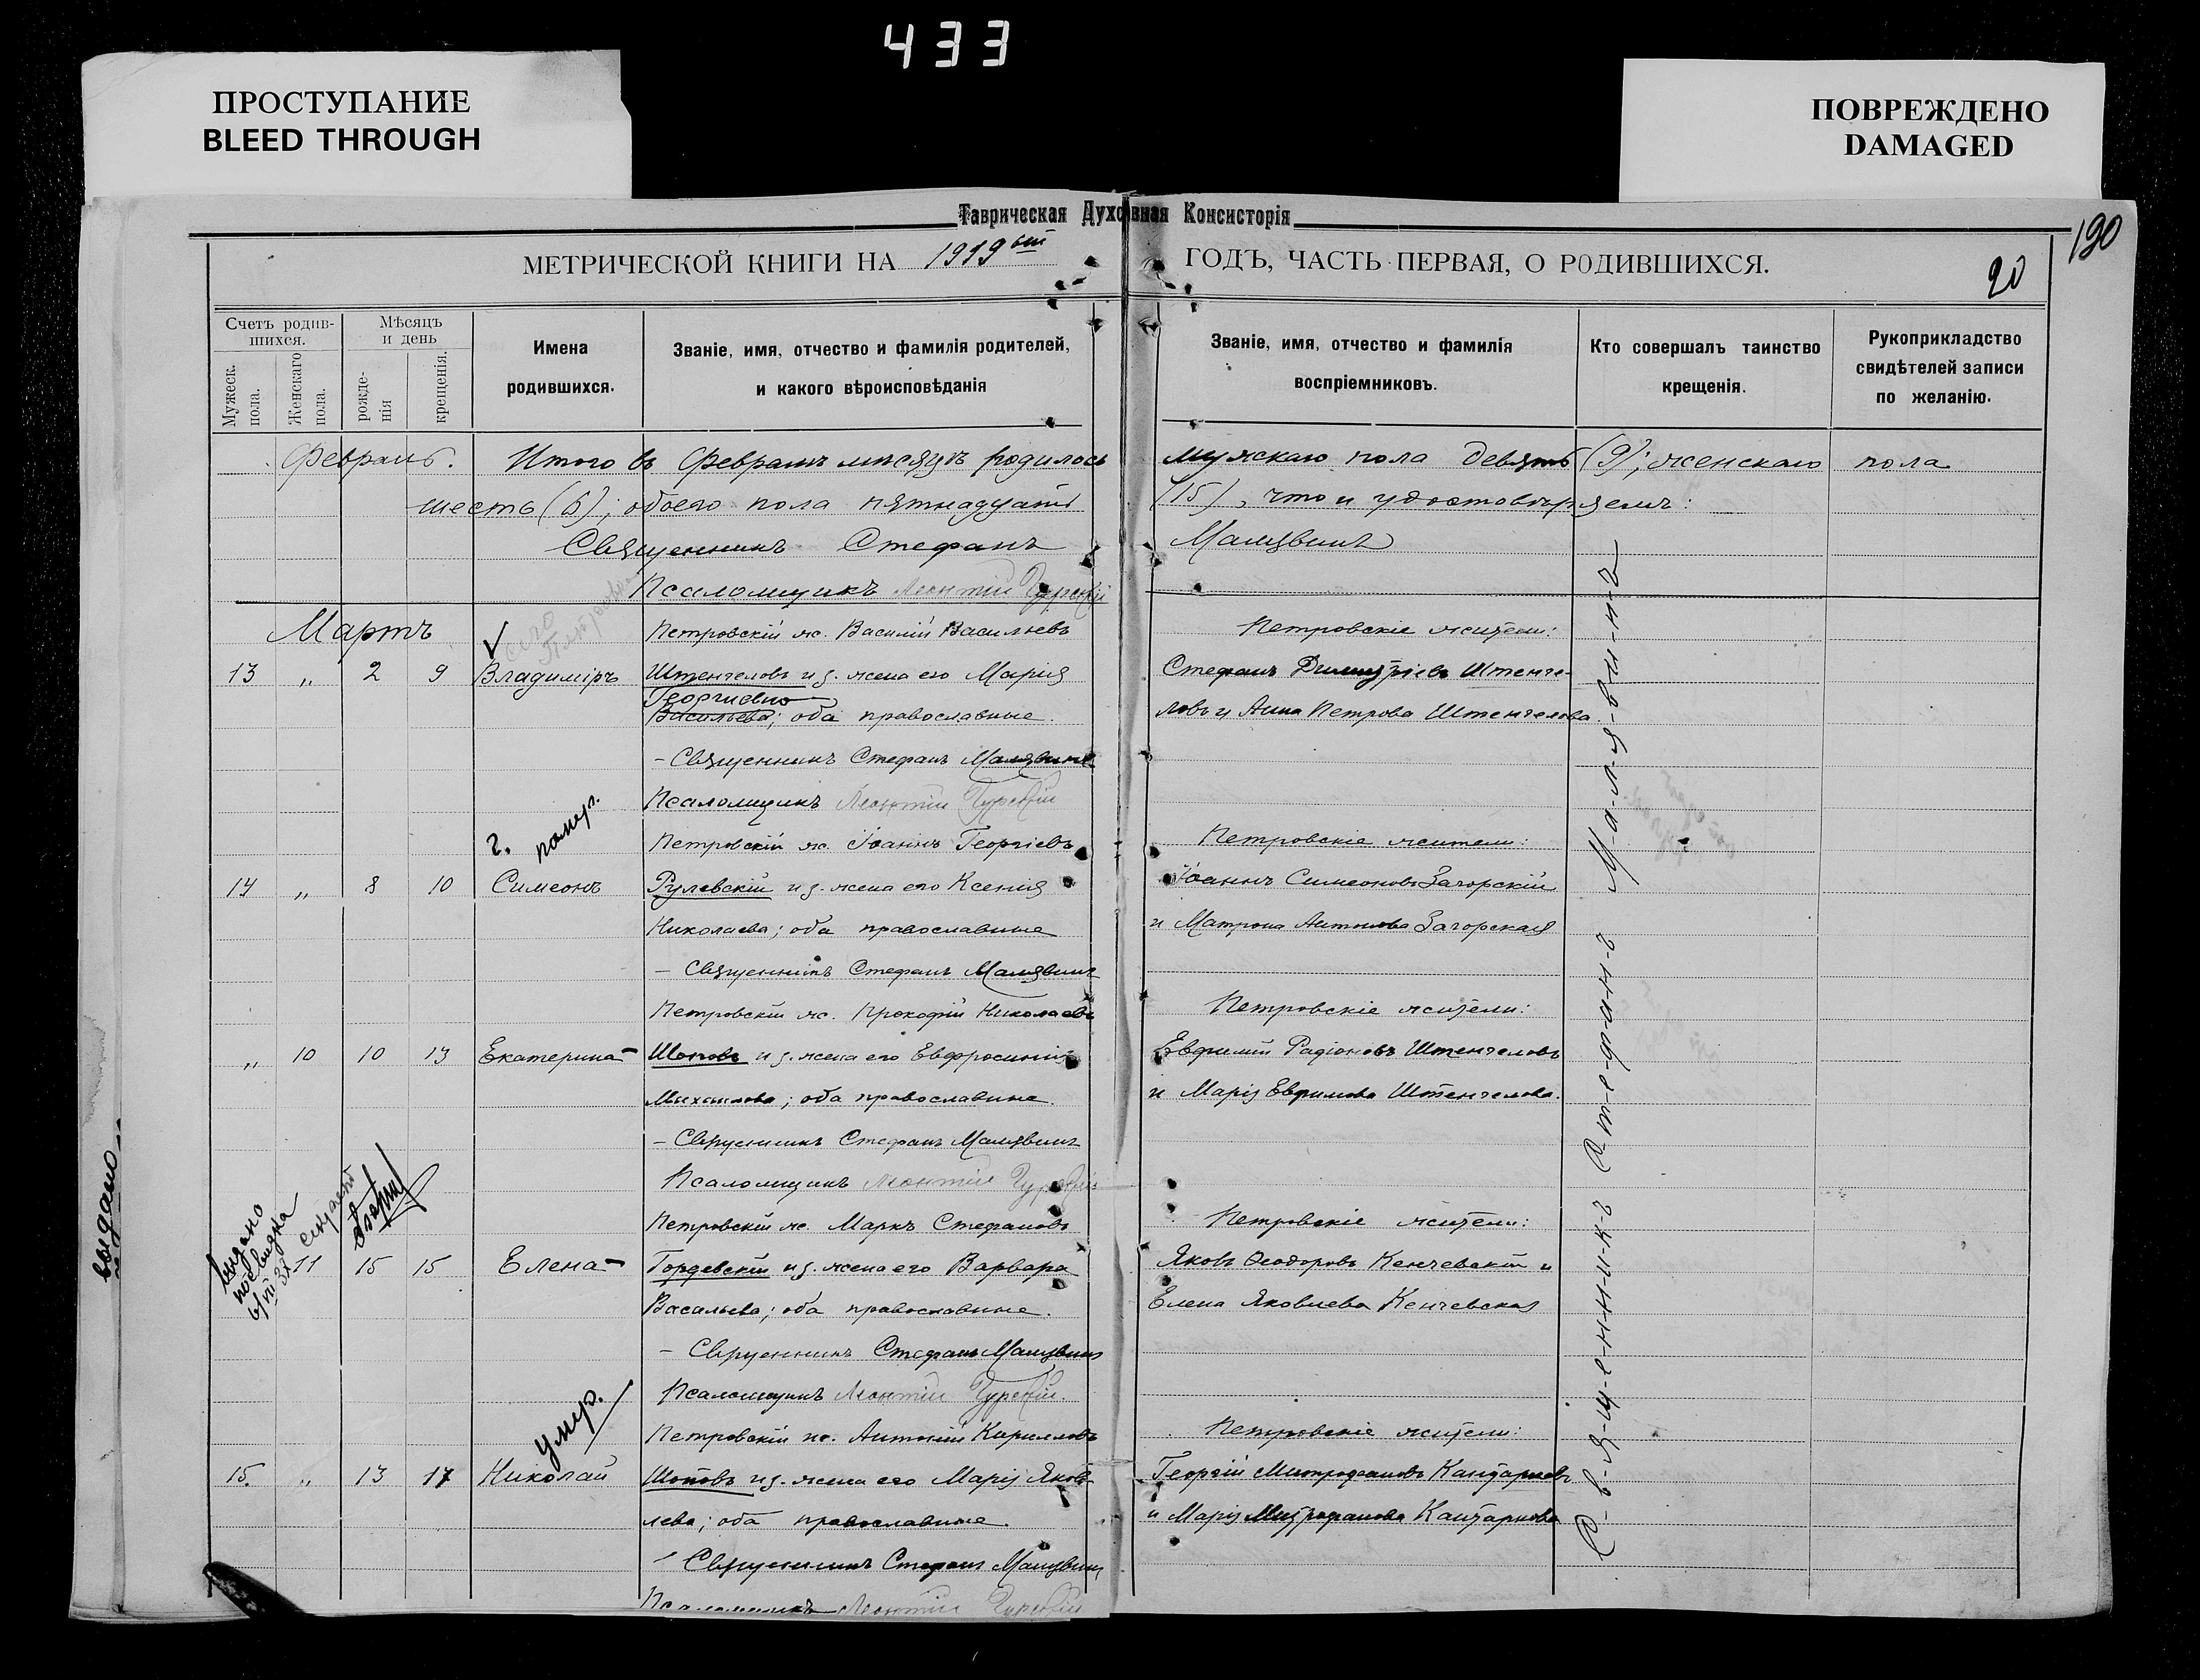 433
ПРОСТУПАНИЕ
BLEED THROUGH
ПОВРЕЖДЕНО
DAMAGED
Таврическая Духовная Консисторія
190
МЕТРИЧЕСКОЙ КНИГИ НА 1919ый ГОДЪ, ЧАСТЬ ПЕРВАЯ, О РОДИВШИХСЯ.
20
Счетъ родив-
шихся.
Мужеск. пола.
Женскаго пола.
Мѣсяцъ
и день
рожде-
нія
крещенія.
Имена
родившихся.
Званіе, имя, отчество и фамилія родителей,
и какого вѣроисповѣданія
Званіе, имя, отчество и фамилія
воспріемниковъ.
Кто совершалъ таинство
крещенія.
Рукоприкладство
свидѣтелей записи
по желанію.
Февраль. Итого въ Февралѣ мѣсяцѣ родилось мужскаго пола девять (9); женскаго пола
шесть (6); обоего пола пятнадцать (15), что и удостовѣряемъ:
Священникъ Стефанъ Малявинъ
Псаломщикъ Леонтій
Мартъ
Петровскій ж. Василій Васильевъ
Петровскіе жители:
13 „ 2 9 Владиміръ Штенгеловъ и з. жена его Марія
Стефанъ Димитріевъ Штенге-
Георгиевна
Васильева; оба православные.
ловъ и Анна Петрова Штенгелова.
– Священникъ Стефанъ Малявинъ
Псаломщикъ Леонтій
помер.
Петровскій ж. Іоаннъ Георгіевъ
Петровскіе жители:
14 „ 8 10 Симеонъ Рулевскій и з. жена его Ксенія
Іоаннъ Симеоновъ Загорскій
Николаева; оба православные
и Матрона Антонова Загорская
– Священникъ Стефанъ Малявинъ
Петровскій ж. Прокофій Николаевъ
Петровскіе жители:
„ 10 10 13 Екатерина Шоповъ и з. жена его Евфросинія
Евфимій Радіоновъ Штенгеловъ
Михаилова; оба православные.
и Марія Евфимова Штенгелова.
– Священникъ Стефанъ Малявинъ
Псаломщикъ Леонтій
выдано
Петровскій ж. Маркъ Стефановъ
Петровскіе жители:
11 15 15 Елена Гордевскій и з. жена его Варвара
Яковъ Ѳеодоровъ Кенчевскій и
Васильева; оба православные.
Елена Яковлева Кенчевская
– Священникъ Стефанъ Малявинъ
Псаломщикъ Леонтій
умер.
Петровскій ж. Антоній Кирилловъ
Петровскіе жители:
15. „ 13 17 Николай Шоповъ и з. жена его Марія Яков-
Георгій Митрофановъ Кантаржевъ
лева; оба православные.
и Марія Митрофанова Кантаржева
Священникъ Стефанъ Малявинъ
Псаломщикъ Леонтій
С-в-я-щ-е-н-н-и-к-ъ С-т-е-ф-а-н-ъ М-а-л-я-в-и-н-ъ
выдано